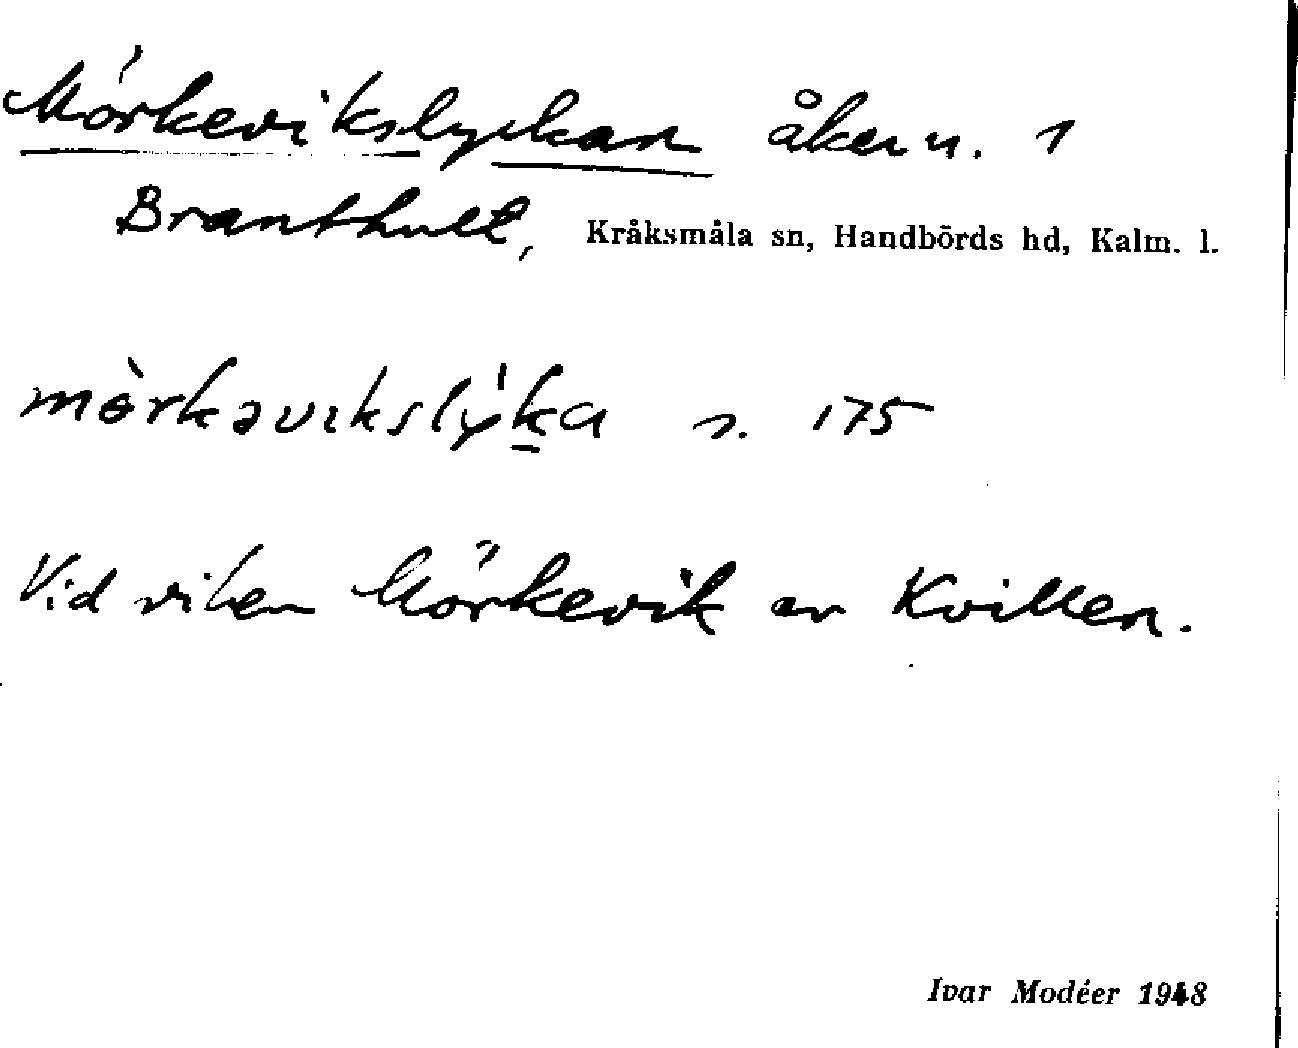 Mörkevikslyckan åkern. 1
Branthult, Kråksmåla sn, Handbörds hd, Kalm. l.
mø̀rkəvɪkslýka s. 175
Vid viken Mörkevik av Kvillen.
Ivar Modéer 1948